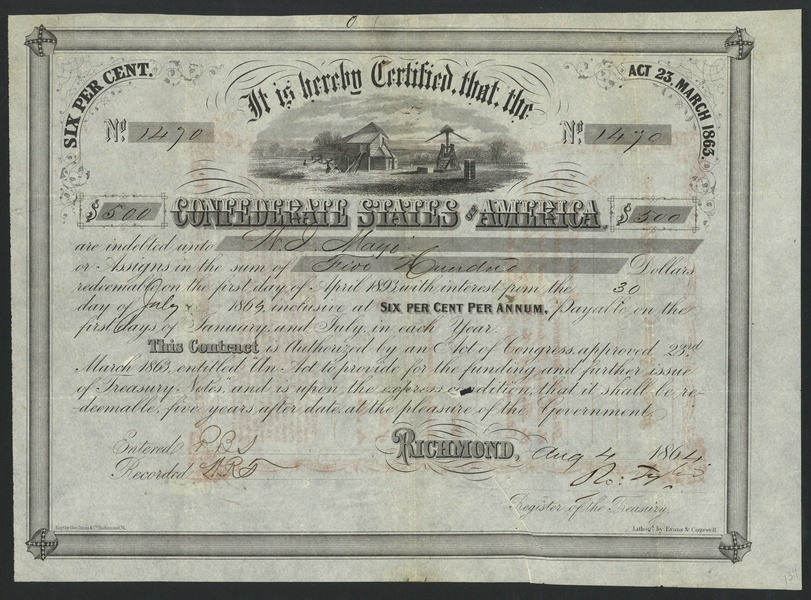 SIX PER CENT.
It is hereby Certified, that, the
ACT 23 MARCH 1863.
No 1470
No 1470
$ 500
CONFEDERATE STATES OF AMERICA.
$ 500
are indebted unto W. J. Mayo
or Assigns in the sum of Five Hundred Dollars
redeemable on the first day of April 1893 with interest from the 30
day of July 1864, inclusive at SIX PER CENT PER ANNUM, Payable on the
first days of January, and July, in each Year.
This Contract is Authorized by an Act of Congress, approved 23rd
March 1863, entitled "An Act to provide for the funding and further issue
of Treasury Notes," and is upon the express condition, that it shall be re-
deemable, five years after date, at the pleasure of the Government.
Entered
RICHMOND, Aug 4 1864
Recorded
Ro: Tyler
Register of the Treasury.
Lithog'd by Evans & Cogswell.